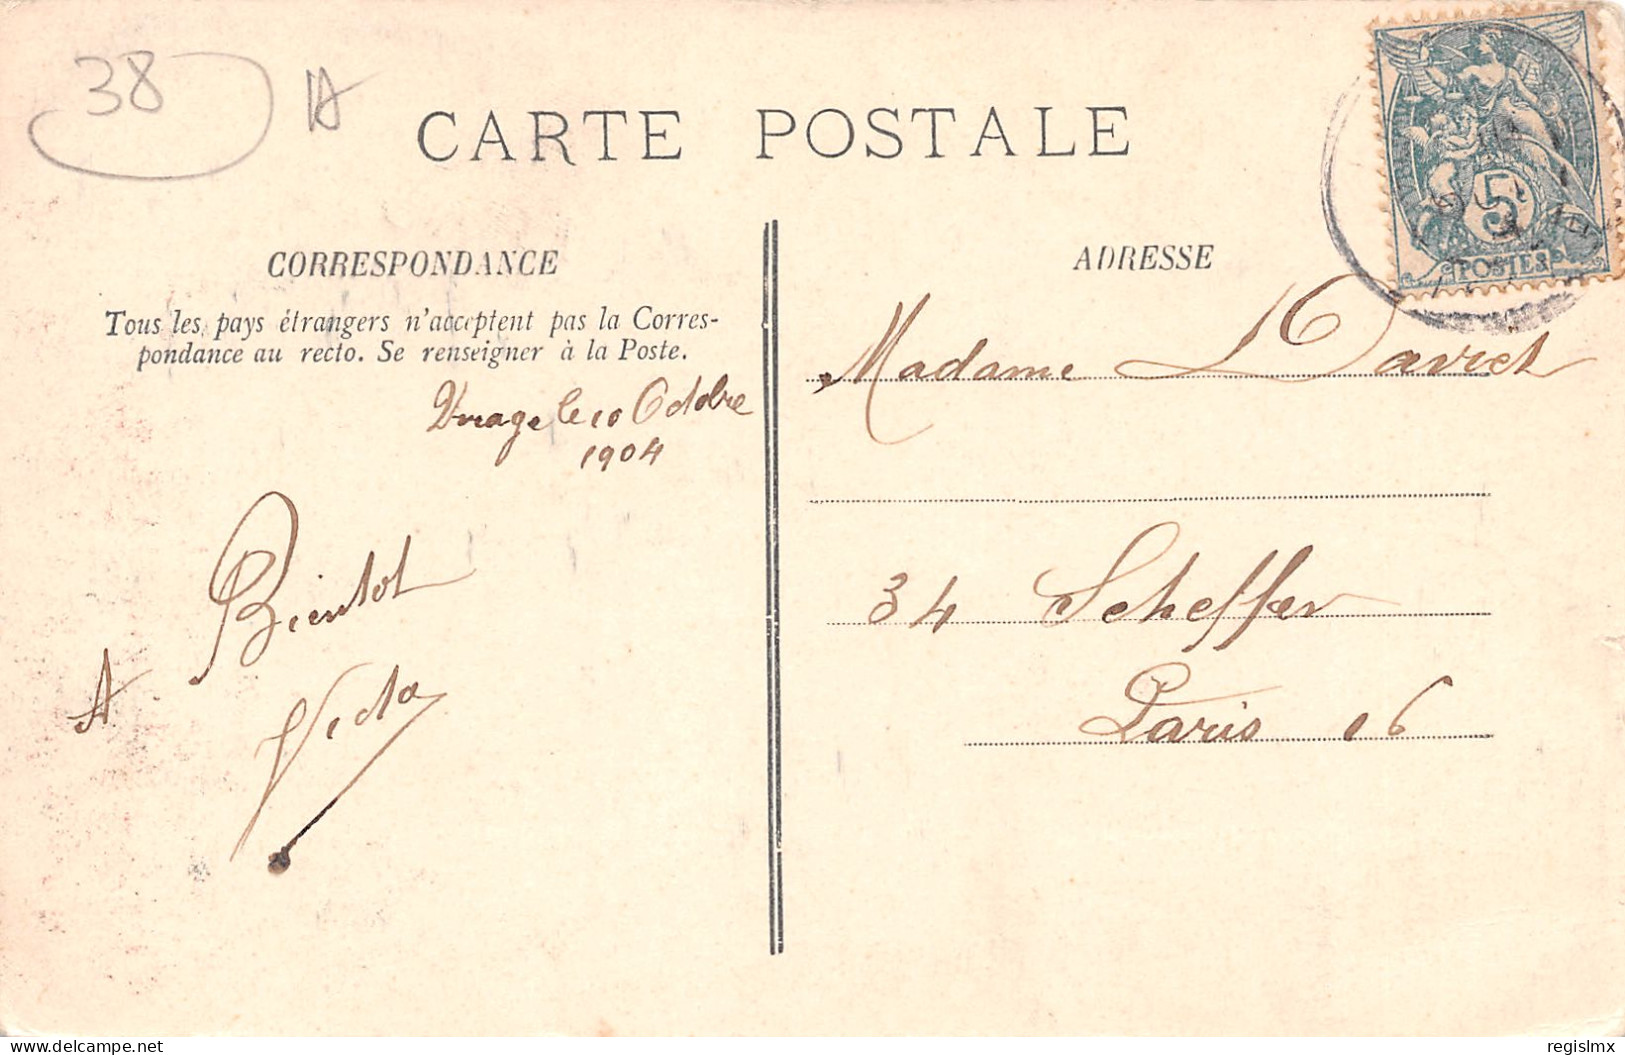 38
CARTE POSTALE
5
POSTES
CORRESPONDANCE
Tous les pays étrangers n'acceptent pas la Corres-
pondance au recto. Se renseigner à la Poste.
Uriage le 10 Octobre
1904
A Bientot
ADRESSE
Madame Davret
34 Scheffer
Paris 16
delcampe.net
regislmx